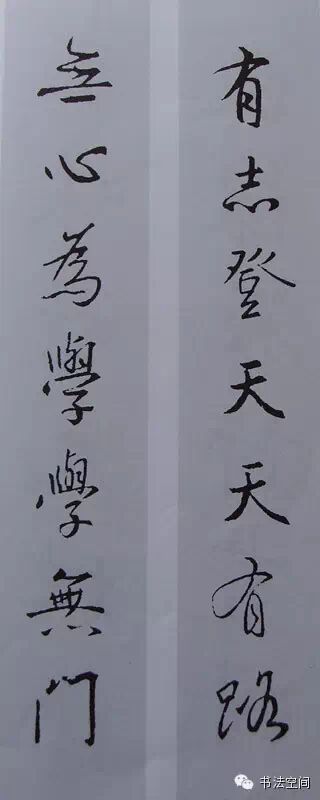 有志登天天有路
無心為學學無門
书法空间